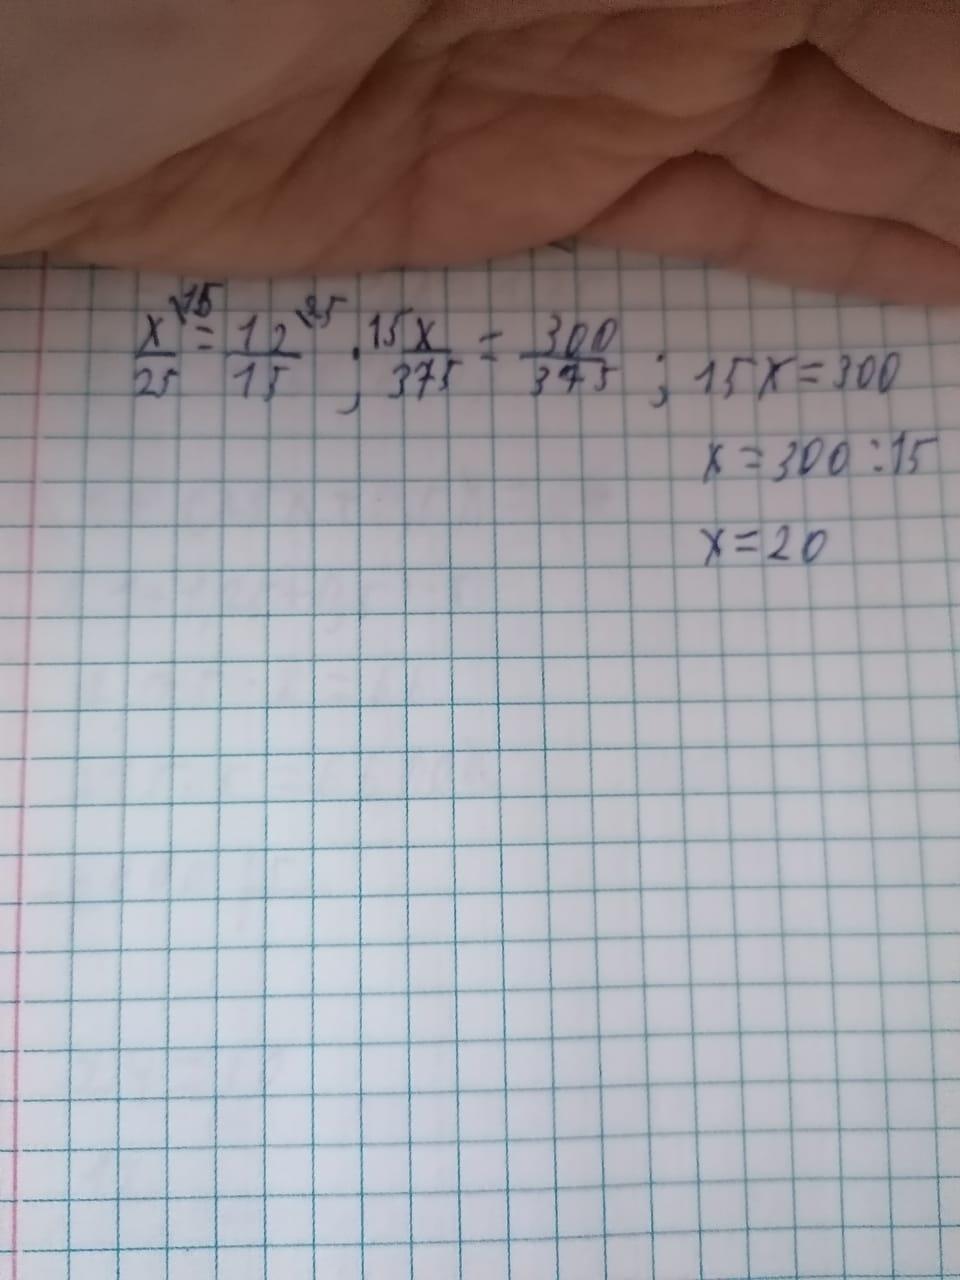 x\15/25 = 12\25/15 ; 15x/375 = 300/375 ; 15x=300
x=300:15
x=20